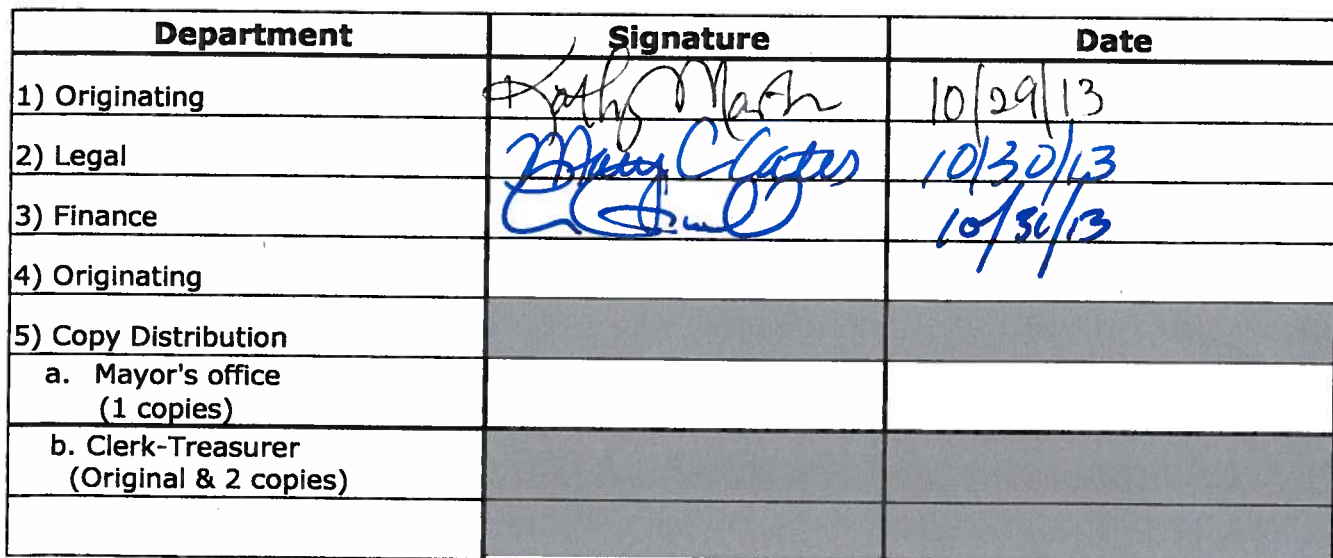 Department Signature Date
1) Originating Kathy 10/29/13
2) Legal Mary C 10/30/13
3) Finance 10/
4) Originating
5) Copy Distribution
a. Mayor's office
(1 copies)
b. Clerk-Treasurer
(Original & 2 copies)